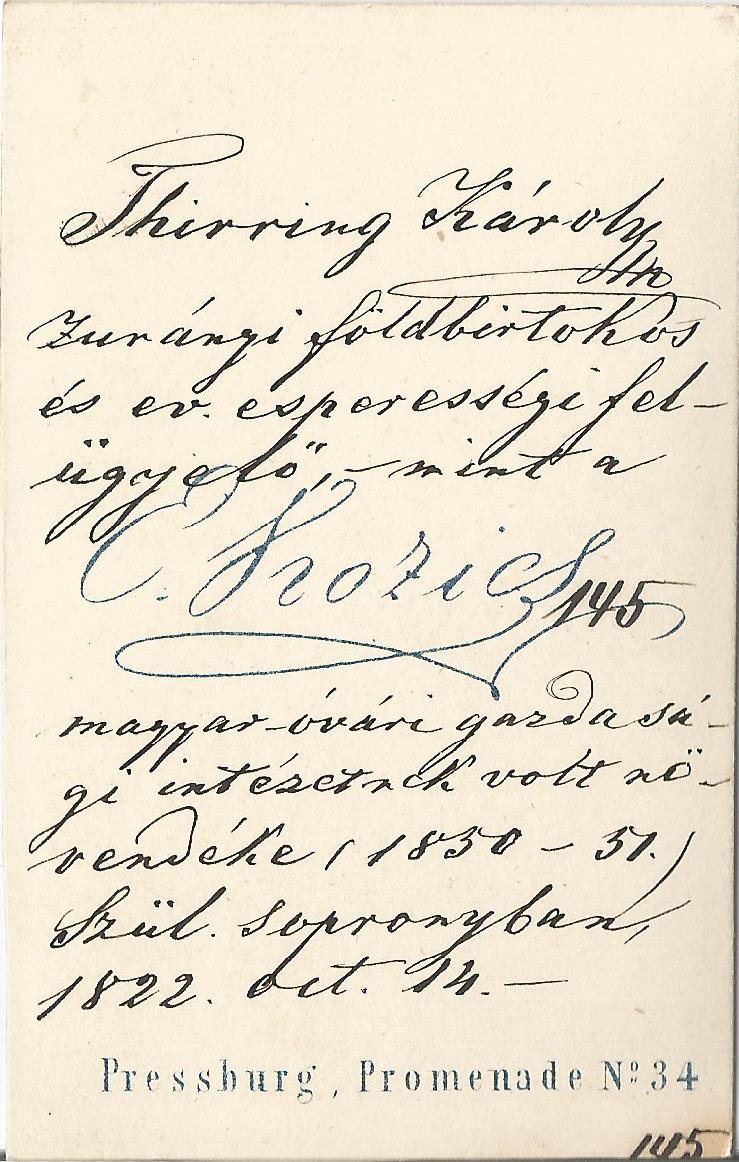 Thirring Károly
zurányi földbirtokos
és ev. esperességi fel-
ügyelő, – mint a
C. Kozics
145
magyar-óvári gazdasá-
gi intézetnek volt nö-
vendéke (1850 – 51.)
Szül. sopronyban,
1822. oct. 14. –
Pressburg, Promenade Nº 34
145